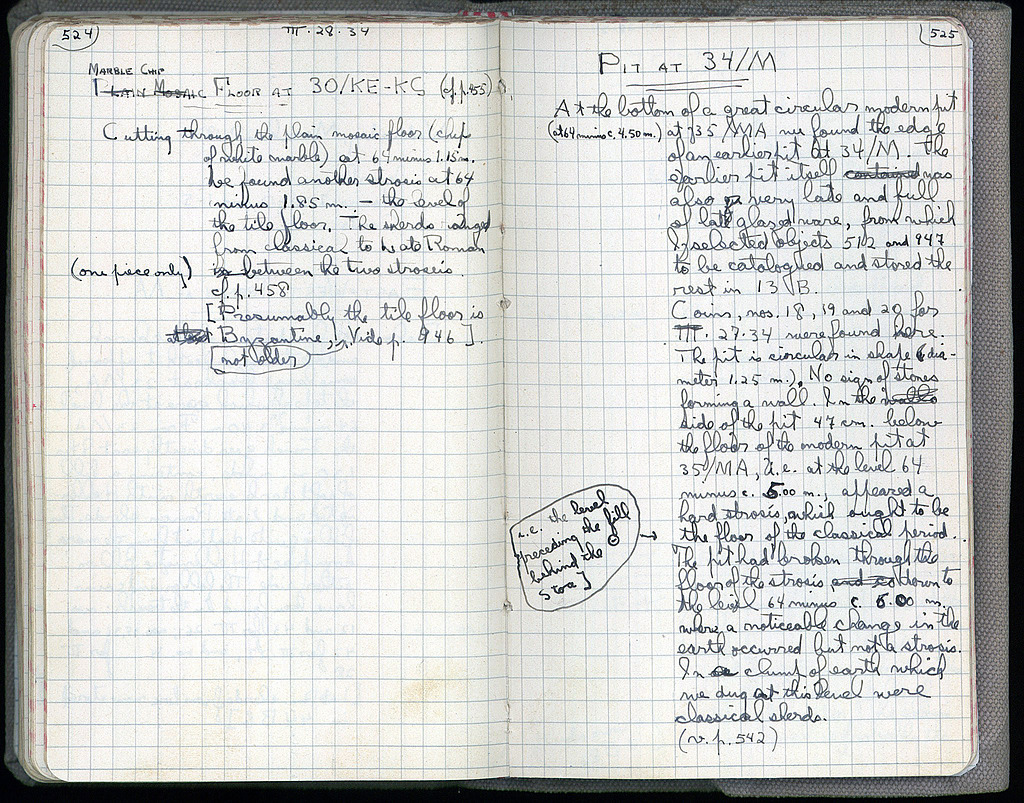 524
III·28·34
MARBLE CHIP
PLAIN MOSAIC FLOOR AT 30/KE-KS (cf. p. 455)
Cutting through the plain mosaic floor (chip
of white marble) at 64 minus 1.15 m.
we found another strosis at 64
minus 1.85 m. – the level of
the tile floor. The sherds ranged
from classical to Late Roman
(one piece only) in between the two stroseis.
cf. p. 458
[Presumably the tile floor is
Byzantine, Vide p. 946].
not older
525
PIT AT 34/M
At the bottom of a great circular modern pit
(at 64 minus c. 4.50 m.) at 35/MA we found the edge
of an earlier pit at 34/M. The
earlier pit itself contained was
also very late and full
of late glazed ware, from which
I selected objects 512 and 947
to be catalogued and stored the
rest in 13 B.
Coins, nos. 18, 19 and 20 for
III·27·34 were found here.
The pit is circular in shape (dia-
meter 1.25 m.). No sign of stones
forming a wall. In the walls
side of the pit 47 cm. below
the floor of the modern pit at
35/MA, i.e. at the level 64
minus c. 5.00 m., appeared a
hard strosis, which ought to be
the floor of the classical period.
i.e. the level
preceding the fill
behind the
Stoa]
The pit had broken through the
floor of the strosis, and so down to
the level 64 minus c. 6.00 m.
where a noticeable change in the
earth occurred but not a strosis.
In a clump of earth which
we dug at this level were
classical sherds.
(v. p. 542)